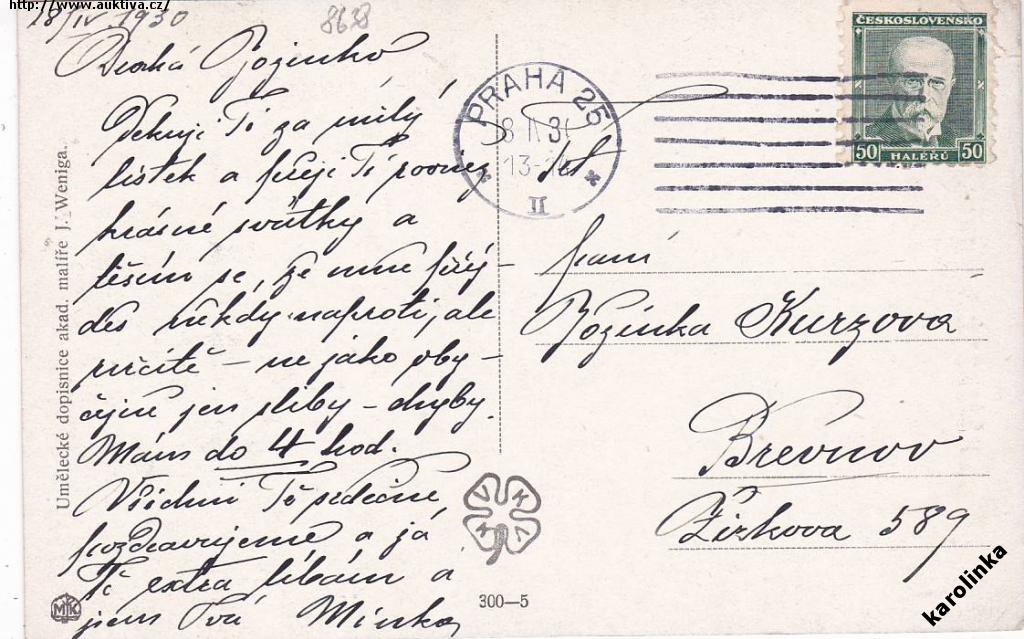 http://www.auktiva.cz/
18/IV. 1930
8628
Drahá Boženko
Děkuji Ti za milý
lístek a přeji Ti rovněž
krásné svátky a
těším se, že mně přij-
deš někdy naproti, ale
určitě – ne jako oby-
čejně jen sliby – chyby.
Mám do 4 hod.
Všichni Tě srdečně
pozdravujeme a já
Tě extra líbám a
jsem Tvá Minka
Umělecké dopisnice akad. malíře J. Weniga.
MK
VKKV
300—5
PRAHA 25
13-
II
ČESKOSLOVENSKO
50 HALÉŘŮ 50
paní
Boženka Kurzová
Břevnov
Žižkova 589
karolinka